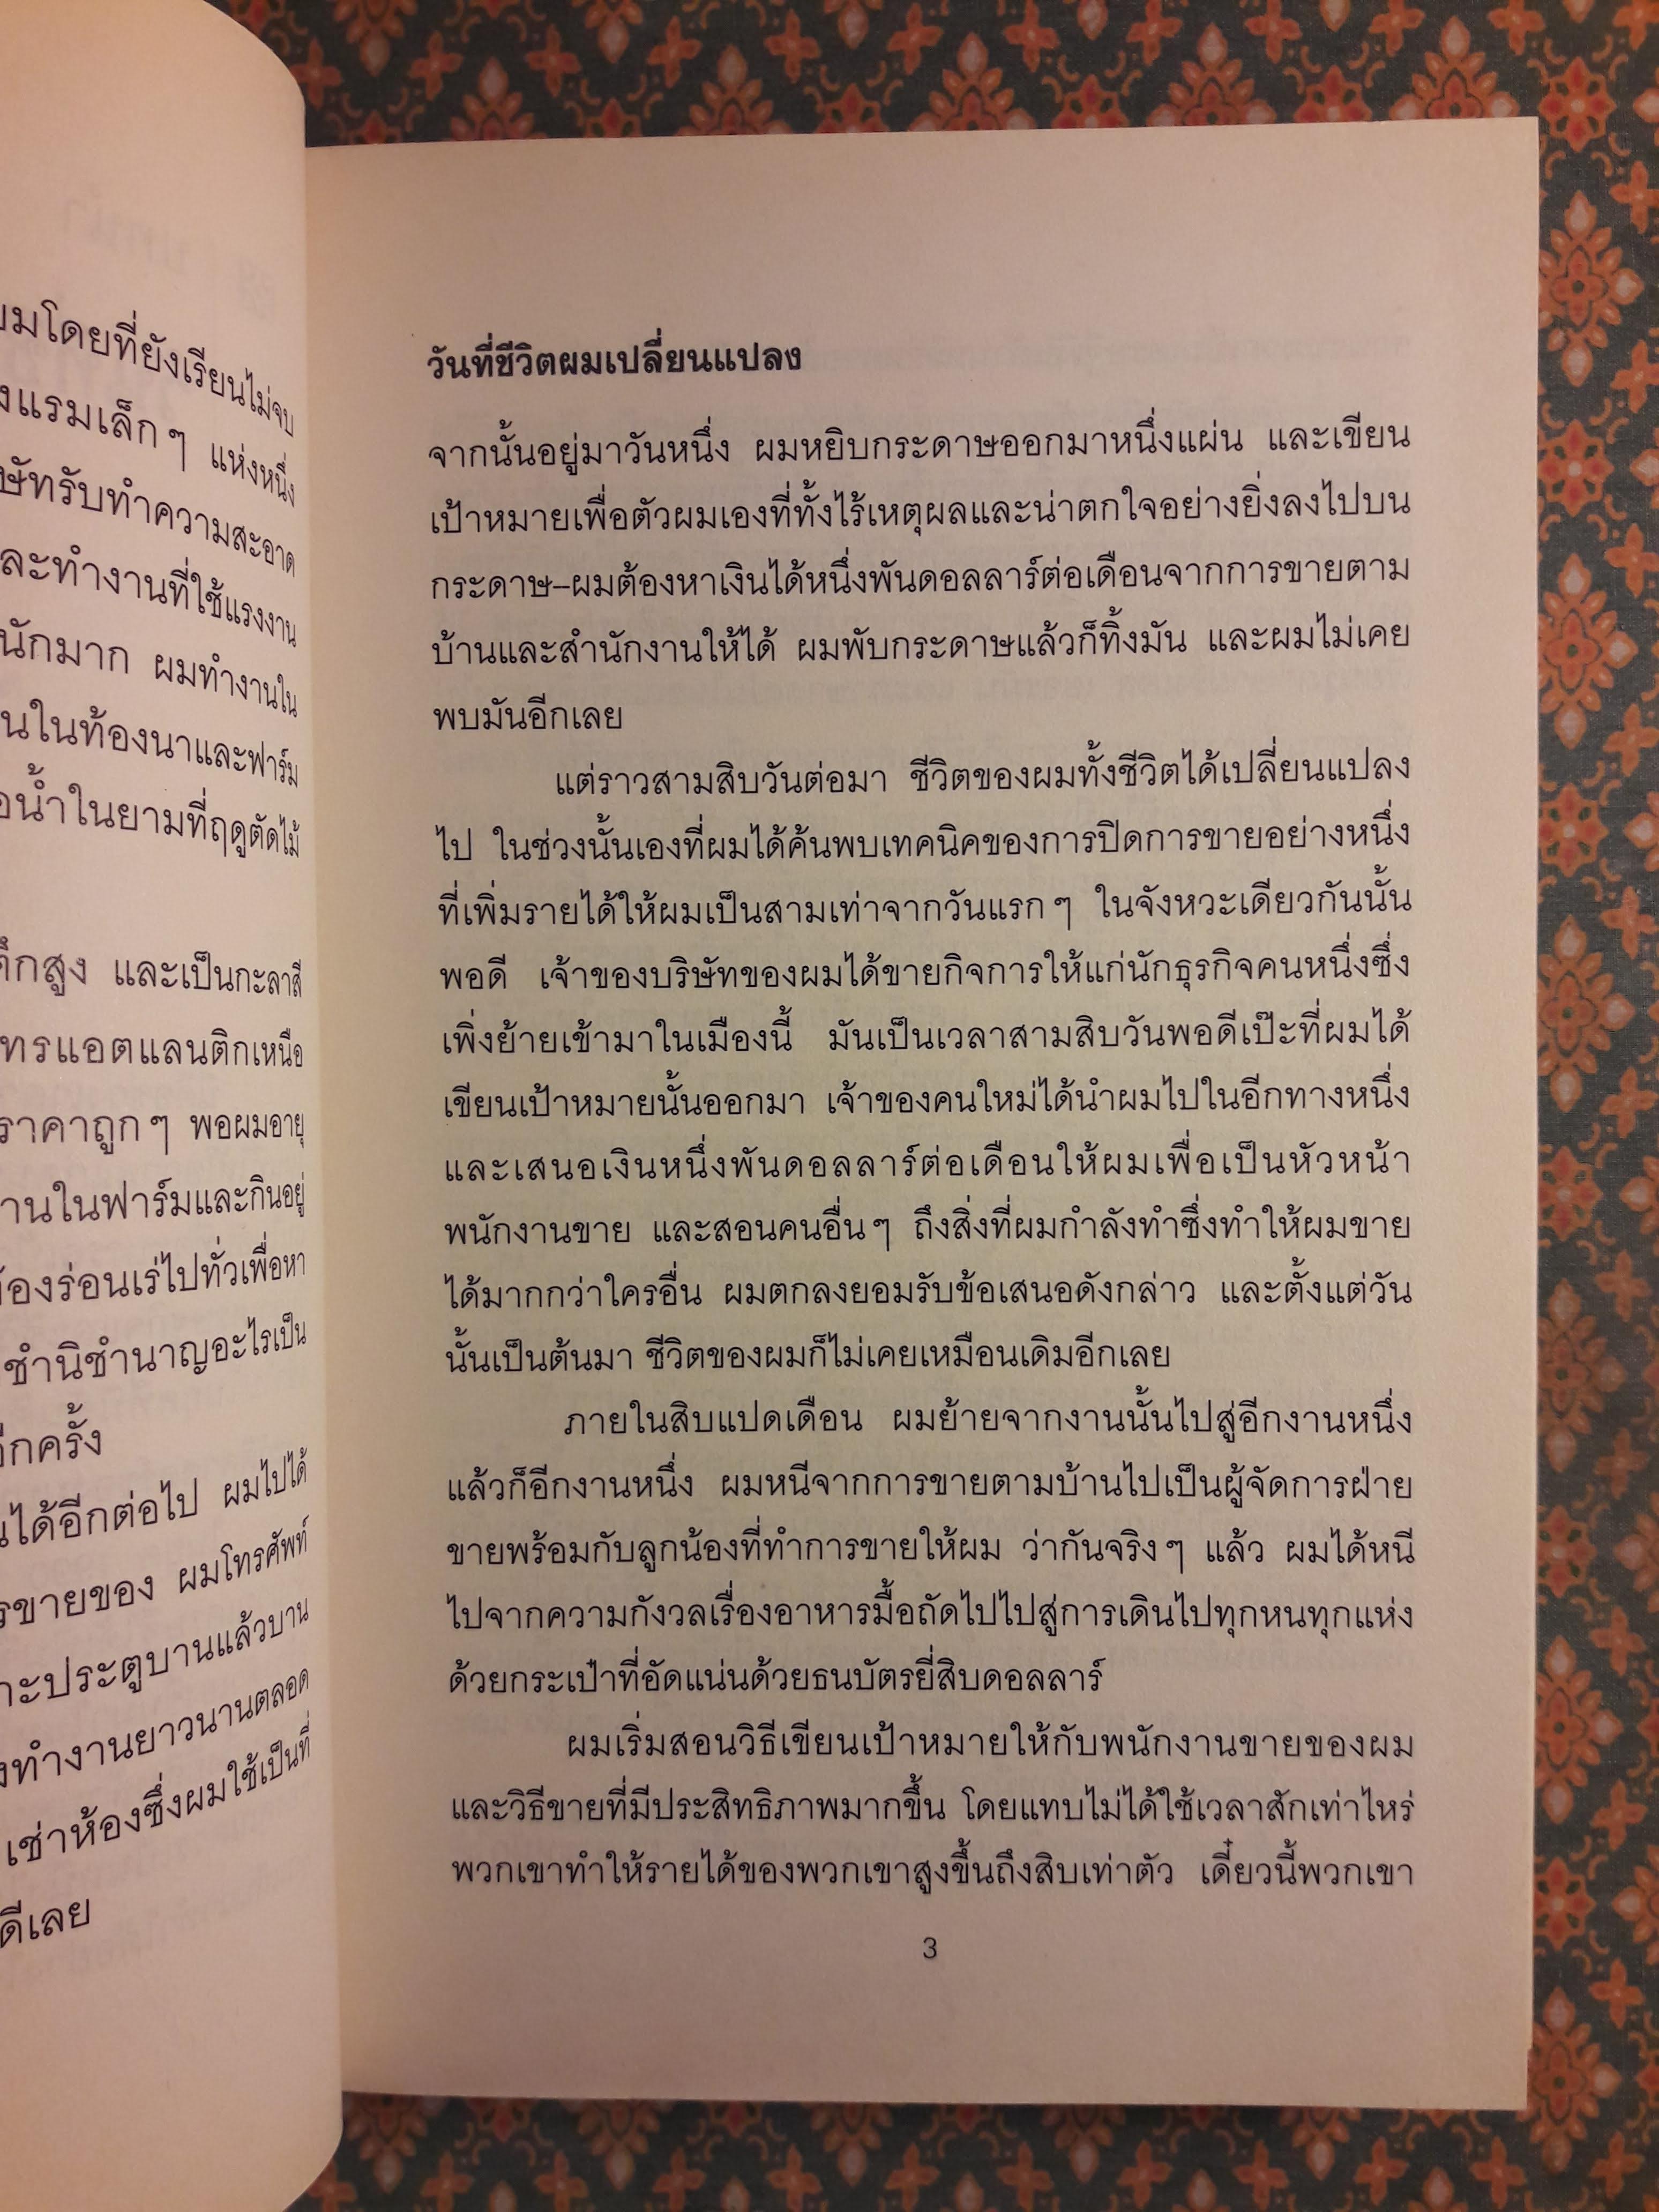 มโดยที่ยังเรียนไม่จบ
งแรมเล็กๆ แห่งหนึ่ง
ษัทรับทำความสะอาด
ละทำงานที่ใช้แรงงาน
นักมาก ผมทำงานใน
นในท้องนาและฟาร์ม
อน้ำในยามที่ฤดูตัดไม้
ตึกสูง และเป็นกะลาสี
ทรแอตแลนติกเหนือ
ราคาถูกๆ พอผมอายุ
านในฟาร์มและกินอยู่
้องร่อนเร่ไปทั่วเพื่อหา
ชำนิชำนาญอะไรเป็น
อีกครั้ง
นได้อีกต่อไป ผมไปได้
รขายของ ผมโทรศัพท์
าะประตูบานแล้วบาน
งทำงานยาวนานตลอด
เช่าห้องซึ่งผมใช้เป็นที่
ดีเลย
วันที่ชีวิตผมเปลี่ยนแปลง
จากนั้นอยู่มาวันหนึ่ง ผมหยิบกระดาษออกมาหนึ่งแผ่น และเขียน
เป้าหมายเพื่อตัวผมเองที่ทั้งไร้เหตุผลและน่าตกใจอย่างยิ่งลงไปบน
กระดาษ–ผมต้องหาเงินได้หนึ่งพันดอลลาร์ต่อเดือนจากการขายตาม
บ้านและสำนักงานให้ได้ ผมพับกระดาษแล้วก็ทิ้งมัน และผมไม่เคย
พบมันอีกเลย
แต่ราวสามสิบวันต่อมา ชีวิตของผมทั้งชีวิตได้เปลี่ยนแปลง
ไป ในช่วงนั้นเองที่ผมได้ค้นพบเทคนิคของการปิดการขายอย่างหนึ่ง
ที่เพิ่มรายได้ให้ผมเป็นสามเท่าจากวันแรกๆ ในจังหวะเดียวกันนั้น
พอดี เจ้าของบริษัทของผมได้ขายกิจการให้แก่นักธุรกิจคนหนึ่งซึ่ง
เพิ่งย้ายเข้ามาในเมืองนี้ มันเป็นเวลาสามสิบวันพอดีเป๊ะที่ผมได้
เขียนเป้าหมายนั้นออกมา เจ้าของคนใหม่ได้นำผมไปในอีกทางหนึ่ง
และเสนอเงินหนึ่งพันดอลลาร์ต่อเดือนให้ผมเพื่อเป็นหัวหน้า
พนักงานขาย และสอนคนอื่นๆ ถึงสิ่งที่ผมกำลังทำซึ่งทำให้ผมขาย
ได้มากกว่าใครอื่น ผมตกลงยอมรับข้อเสนอดังกล่าว และตั้งแต่วัน
นั้นเป็นต้นมา ชีวิตของผมก็ไม่เคยเหมือนเดิมอีกเลย
ภายในสิบแปดเดือน ผมย้ายจากงานนั้นไปสู่อีกงานหนึ่ง
แล้วก็อีกงานหนึ่ง ผมหนีจากการขายตามบ้านไปเป็นผู้จัดการฝ่าย
ขายพร้อมกับลูกน้องที่ทำการขายให้ผม ว่ากันจริงๆ แล้ว ผมได้หนี
ไปจากความกังวลเรื่องอาหารมื้อถัดไปไปสู่การเดินไปทุกหนทุกแห่ง
ด้วยกระเป๋าที่อัดแน่นด้วยธนบัตรยี่สิบดอลลาร์
ผมเริ่มสอนวิธีเขียนเป้าหมายให้กับพนักงานขายของผม
และวิธีขายที่มีประสิทธิภาพมากขึ้น โดยแทบไม่ได้ใช้เวลาสักเท่าไหร่
พวกเขาทำให้รายได้ของพวกเขาสูงขึ้นถึงสิบเท่าตัว เดี๋ยวนี้พวกเขา
3